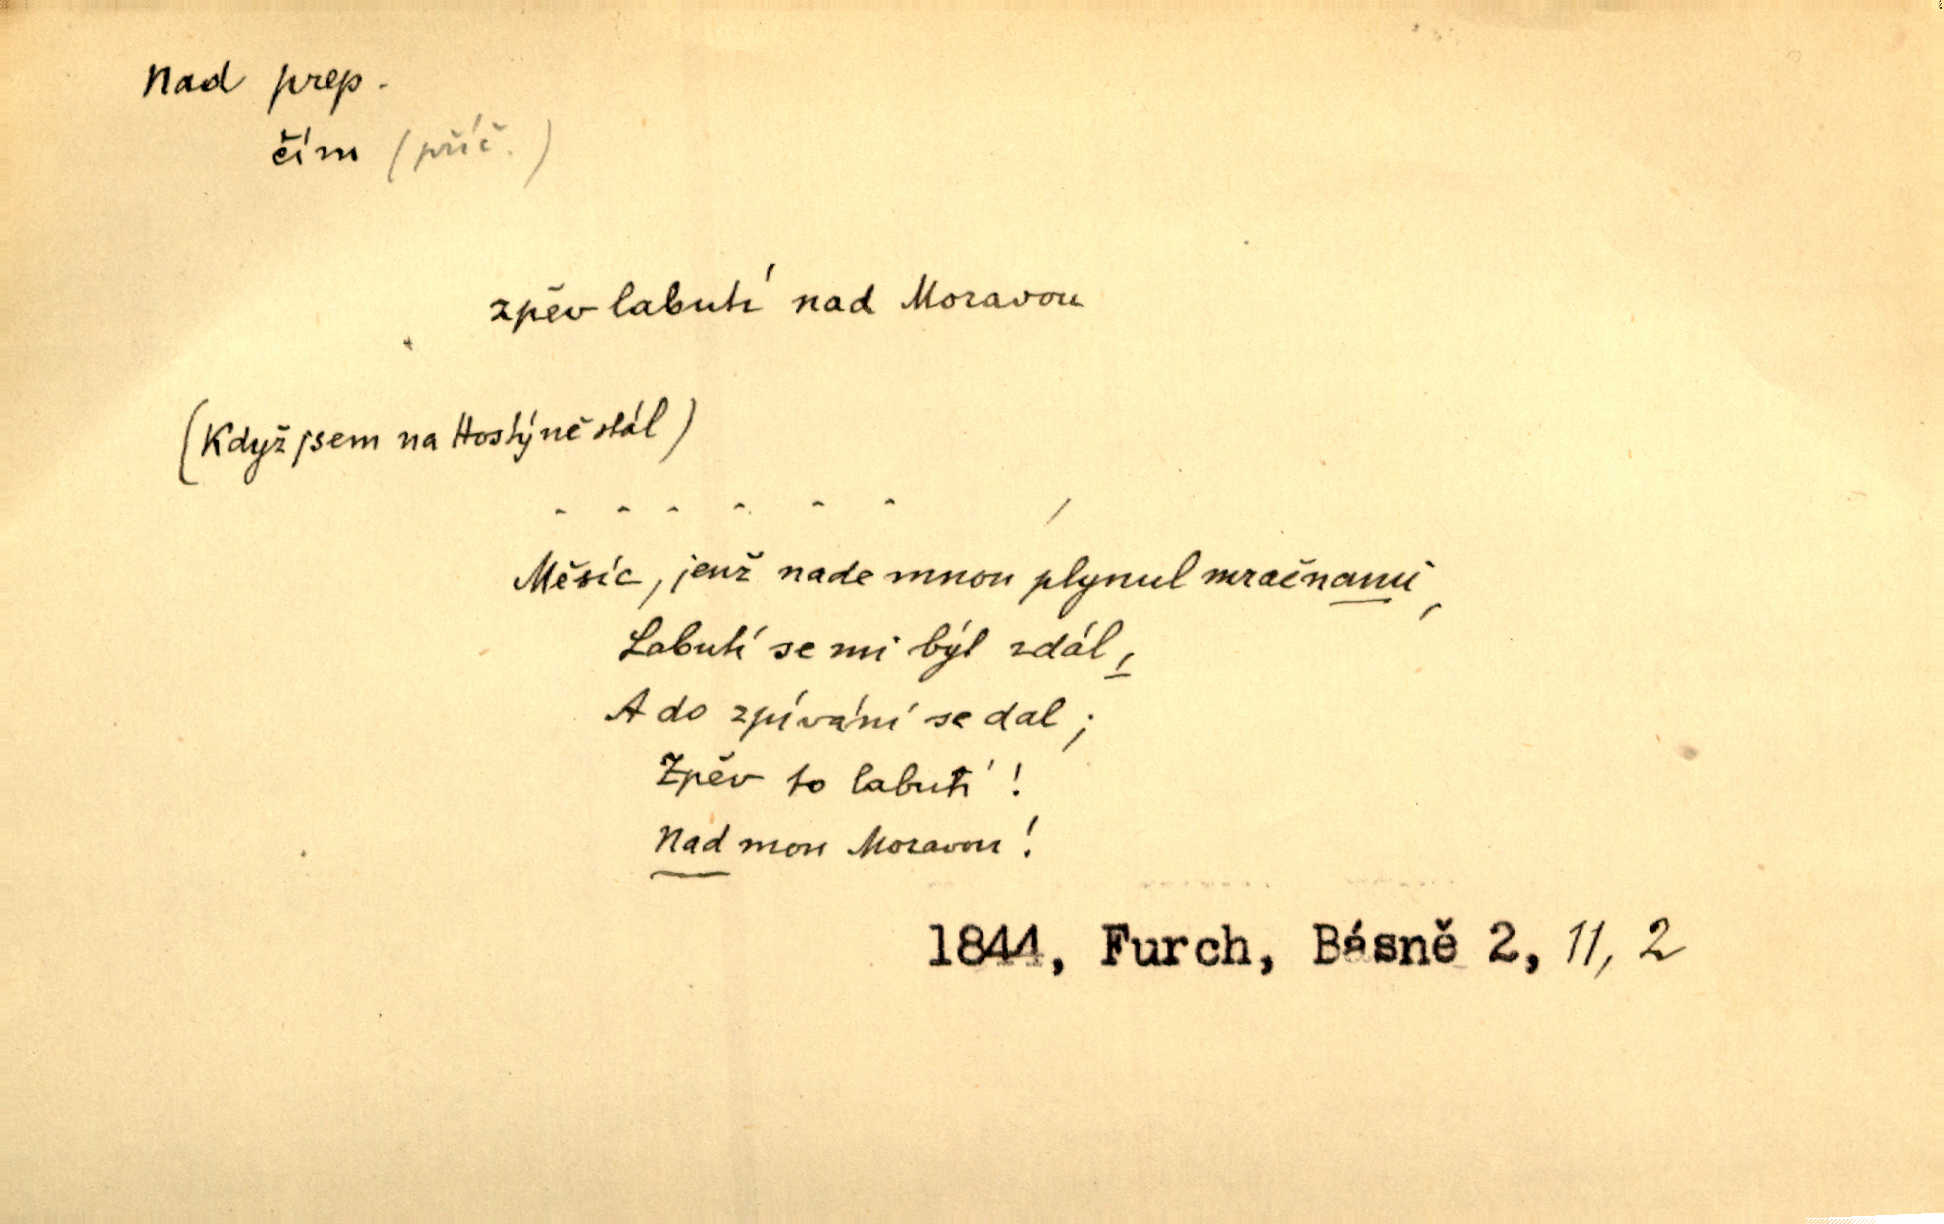 Nad prep.
čím (příč.)
zpěv labutí nad Moravou
(Když jsem na Hostýně stál)
- - - - - - /
Měsíc, jenž nade mnou plynul mračnami,
Labutí se mi býl zdál,
A do zpívání se dal;
Zpěv to labutí!
Nad mou Moravou!
1844, Furch, Básně 2, 11, 2